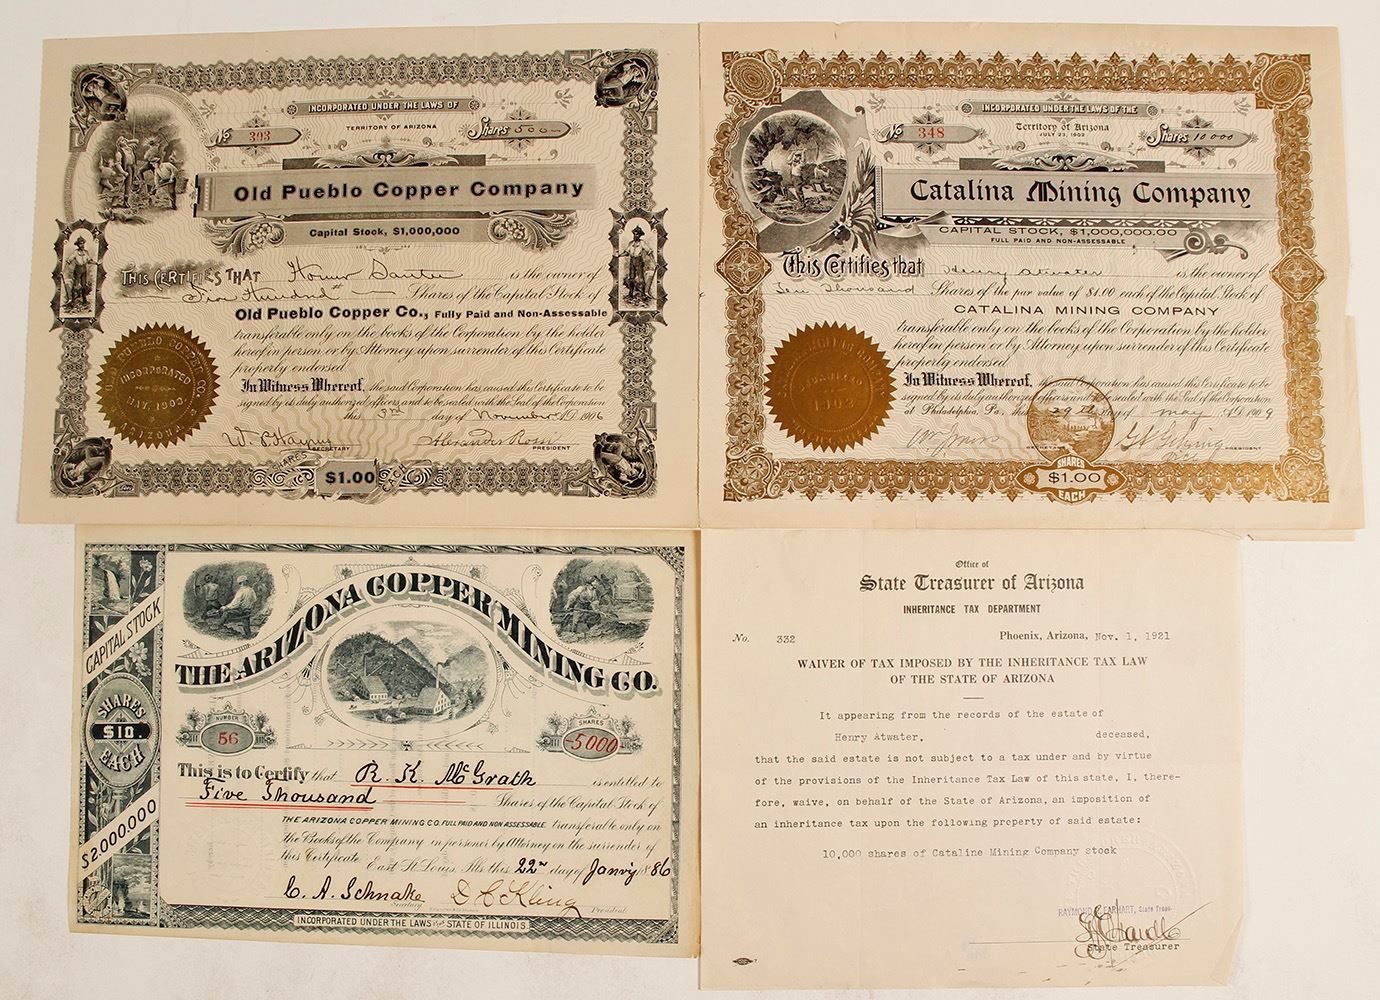 INCORPORATED UNDER THE LAWS OF
TERRITORY OF ARIZONA
No 393
Shares 500
Old Pueblo Copper Company
Capital Stock, $1,000,000
THIS CERTIFIES THAT is the owner of
Hundred Shares of the Capital Stock of
Old Pueblo Copper Co., Fully Paid and Non-Assessable
transferable only on the books of the Corporation by the holder
hereof in person or by Attorney upon surrender of this Certificate
properly endorsed.
In Witness Whereof, the said Corporation has caused this Certificate to be
signed by its duly authorized officers and to be sealed with the Seal of the Corporation
this 3rd day of November A.D. 1906
SECRETARY
PRESIDENT
OLD PUEBLO COPPER CO.
INCORPORATED
MAY, 1903.
ARIZONA
SHARES $1.00 EACH
INCORPORATED UNDER THE LAWS OF THE
Territory of Arizona
JULY 23, 1902
No 348
Shares 10000
Catalina Mining Company
CAPITAL STOCK, $1,000,000.00
FULL PAID AND NON-ASSESSABLE
This Certifies that Henry Atwater is the owner of
Ten Thousand Shares of the par value of $1.00 each of the Capital Stock of
CATALINA MINING COMPANY
transferable only on the books of the Corporation by the holder
hereof in person or by Attorney upon surrender of this Certificate
properly endorsed.
In Witness Whereof, the said Corporation has caused this Certificate to be
signed by its duly authorized officers and to be sealed with the Seal of the Corporation
at Philadelphia, Pa., this 29th day of May A.D. 1909
PRESIDENT
SHARES
$1.00
EACH
CAPITAL STOCK
SHARES
$10.
EACH
$2.000.000
THE ARIZONA COPPER MINING CO.
NUMBER
56
SHARES
5000
This is to Certify that R. K. McGrath is entitled to
Five Thousand Shares of the Capital Stock of
THE ARIZONA COPPER MINING CO. FULL PAID AND NON ASSESSABLE transferable only on
the Books of the Company in person or by Attorney on the surrender of
this Certificate East St Louis, Ills this 22nd day of Janry 1886
C. A. Schnake
Secretary
D C Kling
President
INCORPORATED UNDER THE LAWS OF THE STATE OF ILLINOIS.
Office of
State Treasurer of Arizona
INHERITANCE TAX DEPARTMENT
No. 332
Phoenix, Arizona, Nov. 1, 1921
WAIVER OF TAX IMPOSED BY THE INHERITANCE TAX LAW
OF THE STATE OF ARIZONA
It appearing from the records of the estate of
Henry Atwater, deceased,
that the said estate is not subject to a tax under and by virtue
of the provisions of the Inheritance Tax Law of this state, I, there-
fore, waive, on behalf of the State of Arizona, an imposition of
an inheritance tax upon the following property of said estate:
10,000 shares of Cataline Mining Company stock
RAYMOND EARHART, State Treas.
State Treasurer